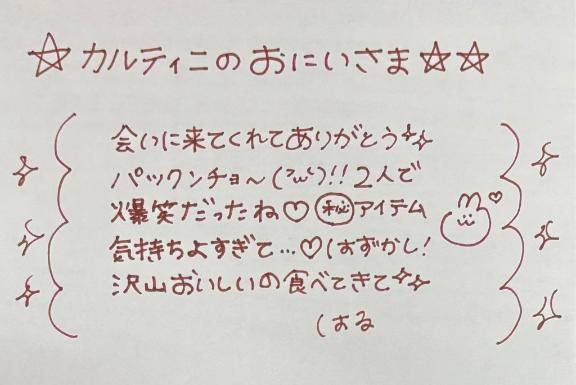 ☆カルティニのおにいさま☆☆
会いに来てくれてありがとう
パックンチョ〜(³ω³)!!2人で
爆笑だったね♡㊙アイテム
気持ちよすぎて…♡はずかし!
沢山おいしいの食べてきて
はる